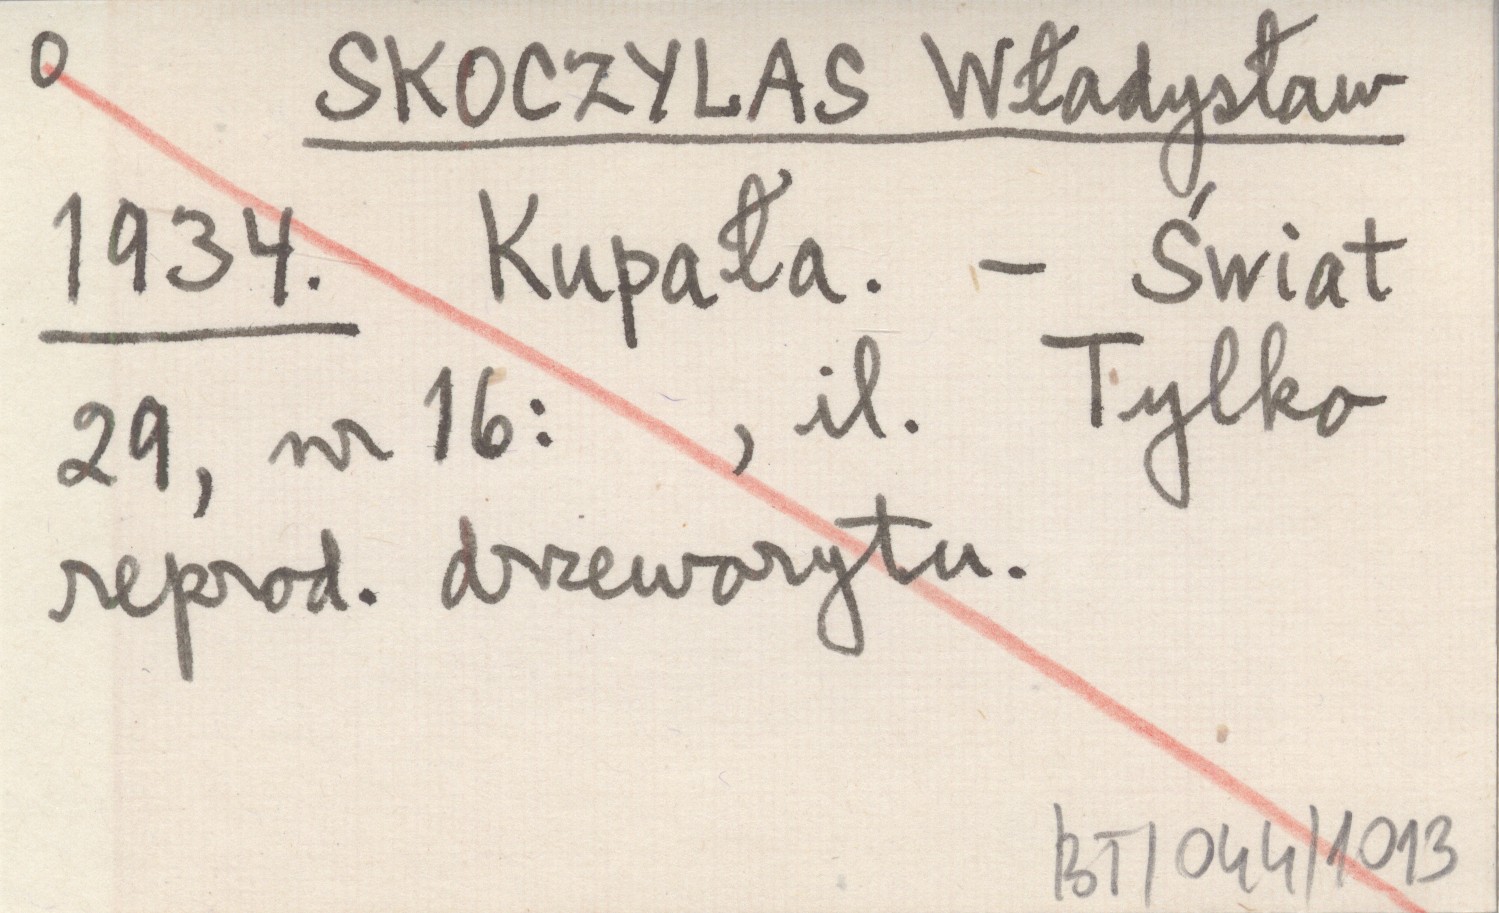 0 SKOCZYLAS Władysław
1934. Kupała. – Świat
29, nr 16: , il. Tylko
reprod. drzeworytu.
BT/044/1013